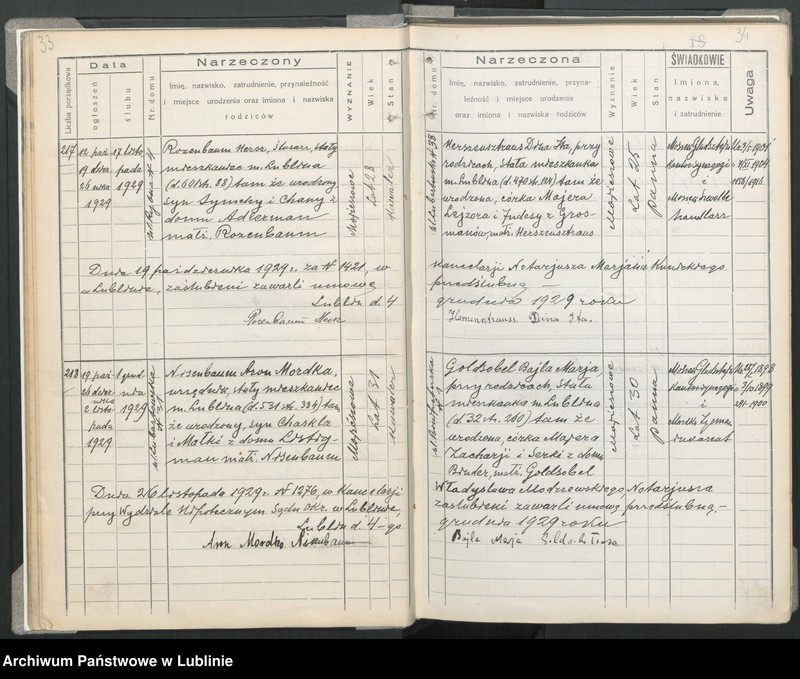 33
Liczba porządkowa
Data
ogłoszeń
ślubu
Nr. domu
Narzeczony
Imię, nazwisko, zatrudnienie, przynależność
i miejsce urodzenia oraz imiona i nazwiska
rodziców
WYZNANIE
Wiek
Stan
217
12 paź
19 dzier.
26 nika
1929
17 listo
pada
1929
Rozenbaum Hersz, ślusarz, stały
mieszkaniec m. Lublina
(d. 601 st. 88) tam że urodzony
syn Symchy i Chany z
domu Adlerman
małż. Rozenbaum
Mojżeszowe
Lat 28
Kawaler
Dnia 19 października 1929 r. za № 1421, w
w Lublinie, zaślubieni zawarli umowę
Lublin d. 4
Rozenbaum Hersz
218
19 paź
26 dzier.
nika
2 listo
pada
1929
1 grud-
nia
1929
ul. Lubartowska
№ 31
Nisenbaum Aron Mordka,
urzędnik, stały mieszkaniec
m. Lublina (d. 531 st. 334) tam
że urodzony, syn Chaskla
i Małki z domu
małż. Nisenbaum
Mojżeszowe
Lat 31
Kawaler
Dnia 26 listopada 1929 r. № 1276, w Kancelarji
przy Wydziale Hipotecznym Sądu Okr. w Lublinie,
Lublin d. 4-go
Aron Mordko Nisenbaum
34
Nr. domu
Narzeczona
Imię, nazwisko, zatrudnienie, przyna-
leżność i miejsce urodzenia
oraz imiona i nazwiska rodziców
Wyznanie
Wiek
Stan
ŚWIADKOWIE
Imiona,
nazwiska
i zatrudnienie
Uwaga
Herszensztraus Dina Ita, przy
rodzicach, stała mieszkanka
m. Lublina (d. 470 st. 124) tam że
urodzona, córka Majera
Lejzora i Judesy z Gros-
manów, małż. Herszensztraus
Mojżeszowe
Lat 25
Panna
Kantor synagogi
i
handlarz
1158/1916
Kancelarji Notarjusza Marjana
przedślubną —
grudnia 1929 roku
Dina Ita
Goldsobel Bajla Marja,
przy rodzicach, stała
mieszkanka m. Lublina
(d. 32 st. 260) tam że
urodzona, córka Majera
Zacharji i Serki z domu
Binder, małż. Goldsobel
Mojżeszowe
Lat 30
Panna
Kantor synagogi
i
Władysława Modrzewskiego, Notarjusza
zaślubieni zawarli umowę przedślubną.—
grudnia 1929 roku
Bajla Marja
Archiwum Państwowe w Lublinie